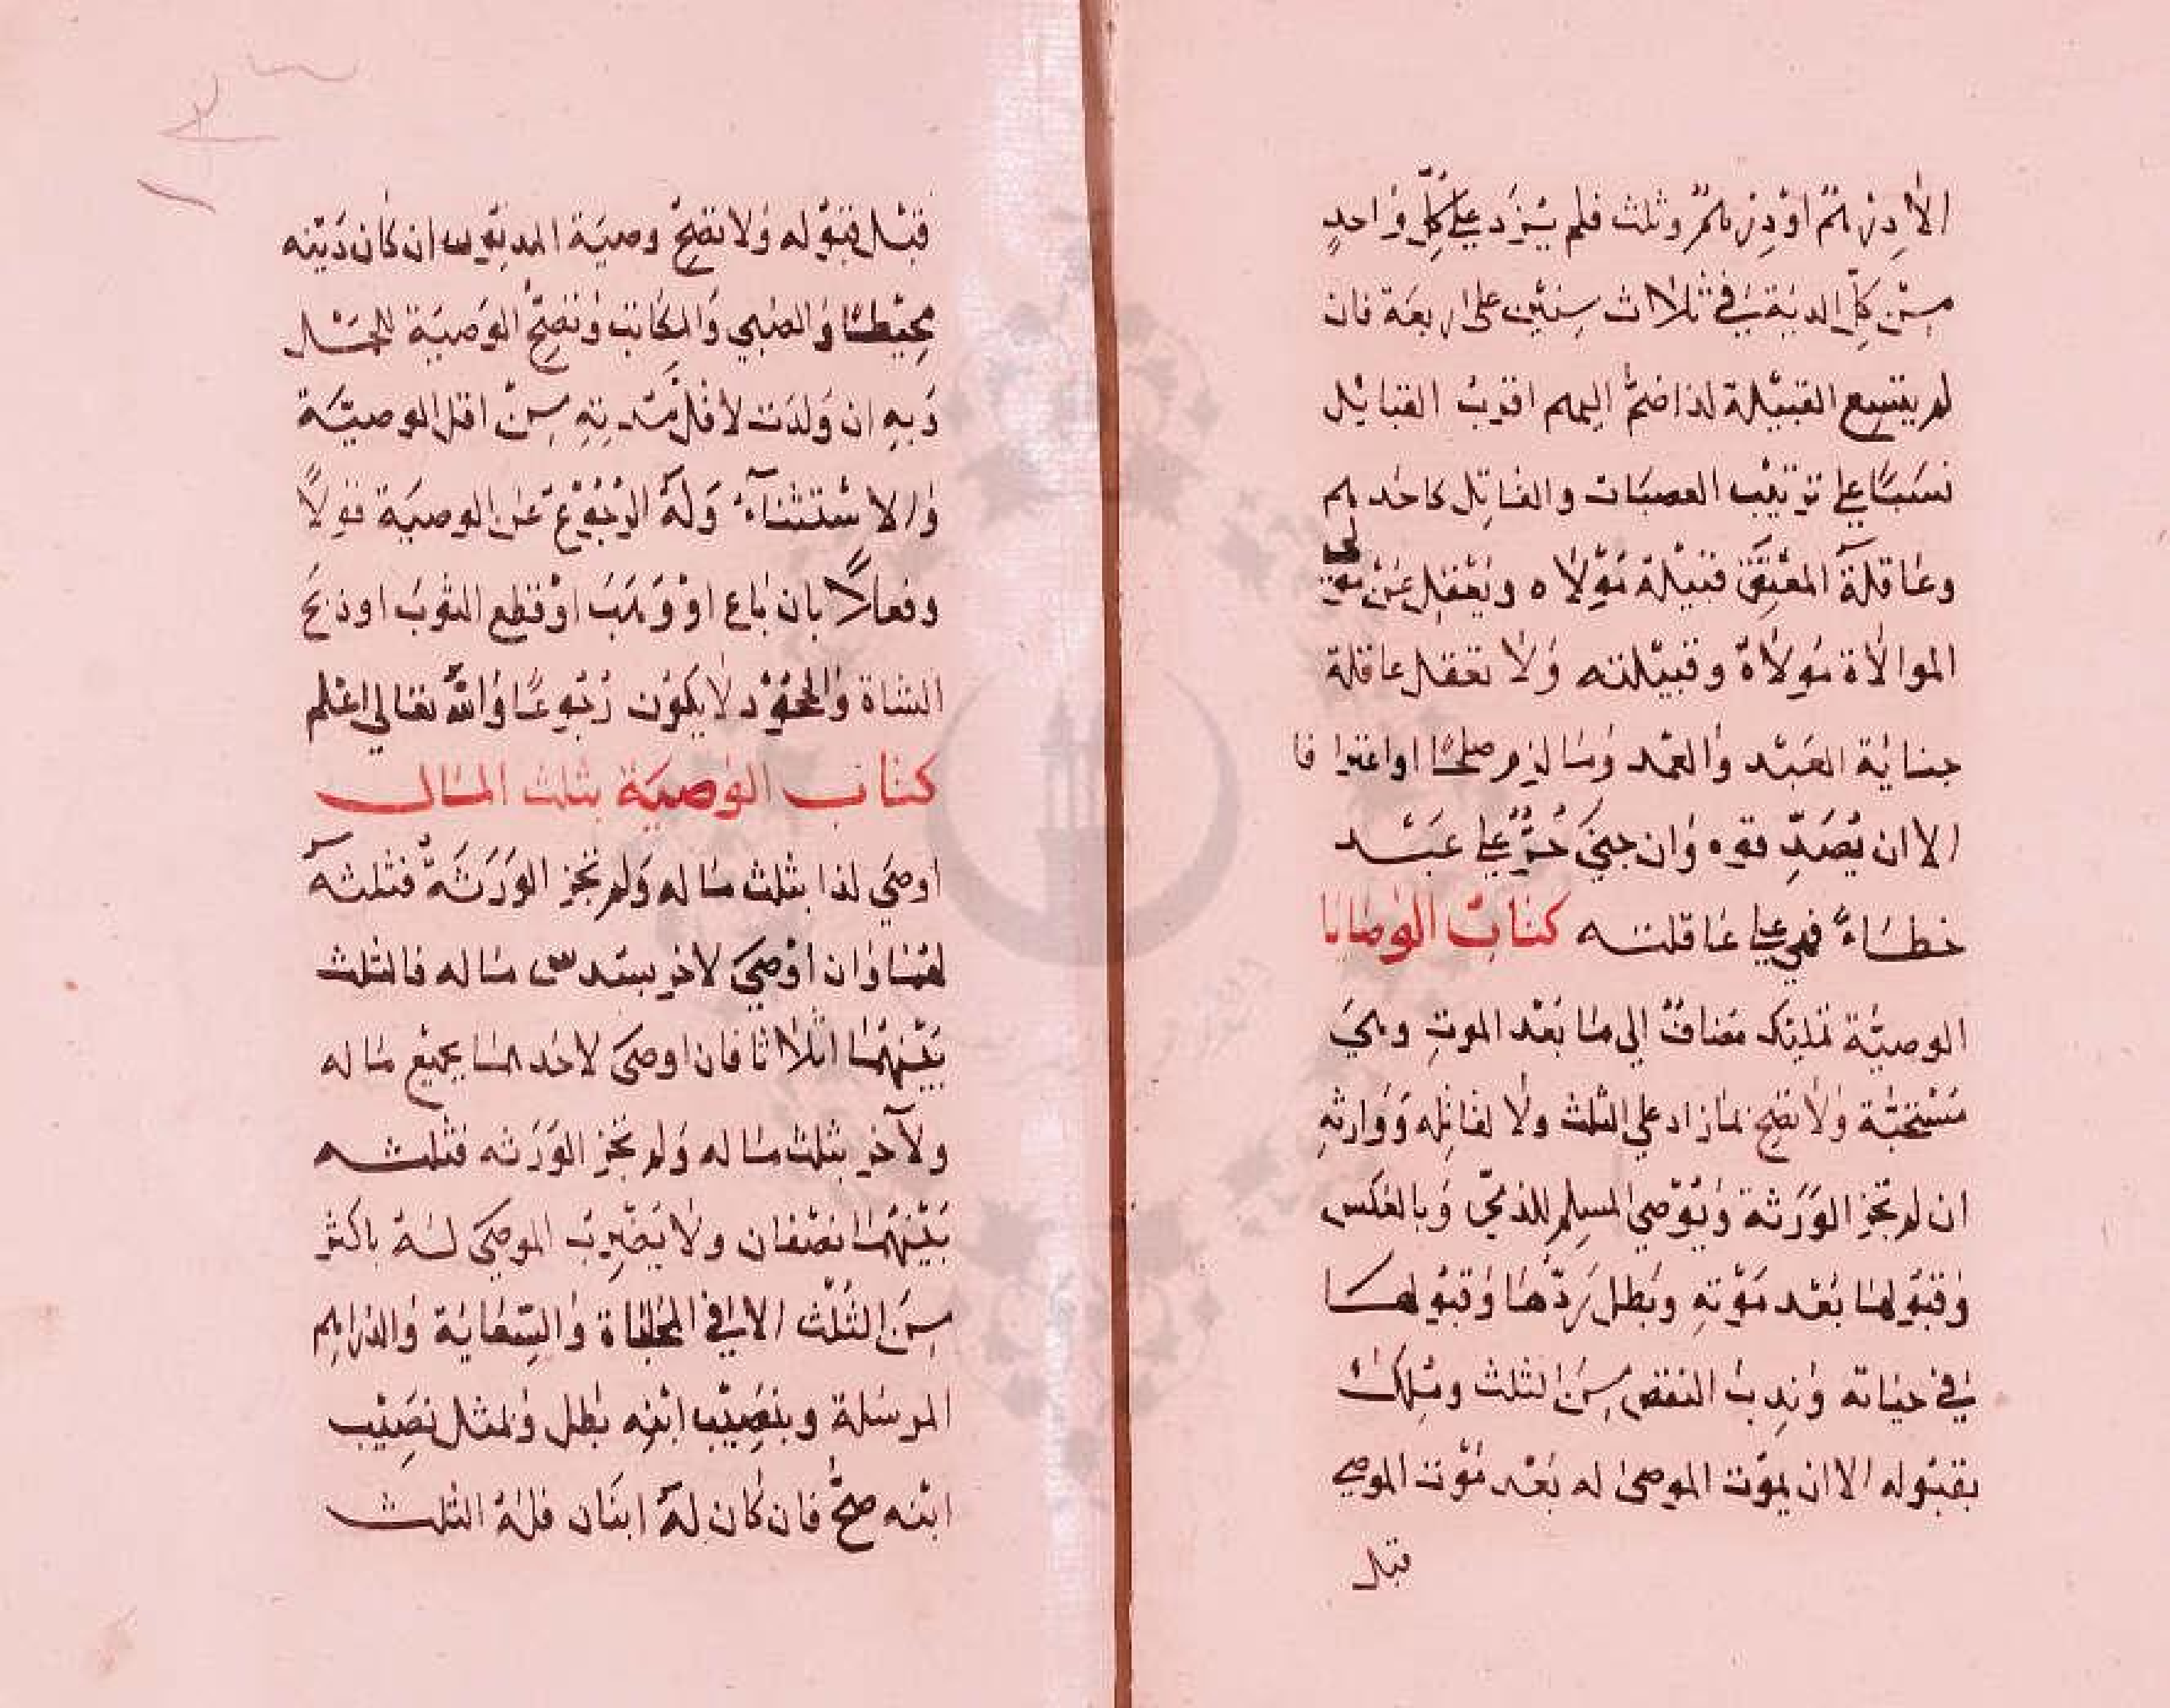 الا درهم او درهم وثلث فلم يزد على كل واحد
من كل الدية في ثلاث سنين على اربعة فان
لم يتسع القبيلة لذا ضم اليهم اقرب القبائل
نسبا على ترتيب العصبات والقاتل كاحدهم
وعاقلة المعتق قبيلة مولاه ويعقل عن مولى
الموالاة مولاه وقبيلته ولا تعقل عاقلة
جناية العبد والعمد وما لزم صلحا او اعترا فا
الا ان يصدقوه وان جنى حر على عبد
خطاء فهي على عاقلته كتاب الوصايا
الوصية تمليك مضاف الى ما بعد الموت وهي
مستحبة ولا تصح بما زاد على الثلث ولا لقاتله ووارثه
ان لم تجز الورثة ويوصي المسلم للذمي وبالعكس
وقبولها بعد موته وبطل ردها وقبولها
في حياته وندب النقص من الثلث وملك
بقبوله الا ان يموت الموصى له بعد موت الموصي
قبل
قبل قبوله ولا تصح وصية المديون ان كان دينه
محيطا والصبي والمكاتب وتصح الوصية للحمل
وبه ان ولدت لاقل مدته من اقل الوصية
والاستثناء وله الرجوع عن الوصية قولا
وفعلا بان باع او وهب او قطع الثوب او ذبح
الشاة والجحود لا يكون رجوعا والله تعالى اعلم
كتاب الوصية بثلث المال
اوصى لذا بثلث ماله ولم تجز الورثة فثلثه
لهما وان اوصى لاخر بسدس ماله فالثلث
بينهما اثلاثا فان اوصى لاحدهما بجميع ماله
ولآخر بثلث ماله ولم تجز الورثه فثلثه
بينهما نصفان ولا يضرب الموصى له باكثر
من الثلث الا في المحاباة والسعاية والدراهم
المرسلة وبنصيب ابنه بطل وبمثل نصيب
ابنه صح فان كان له ابنان فله الثلث